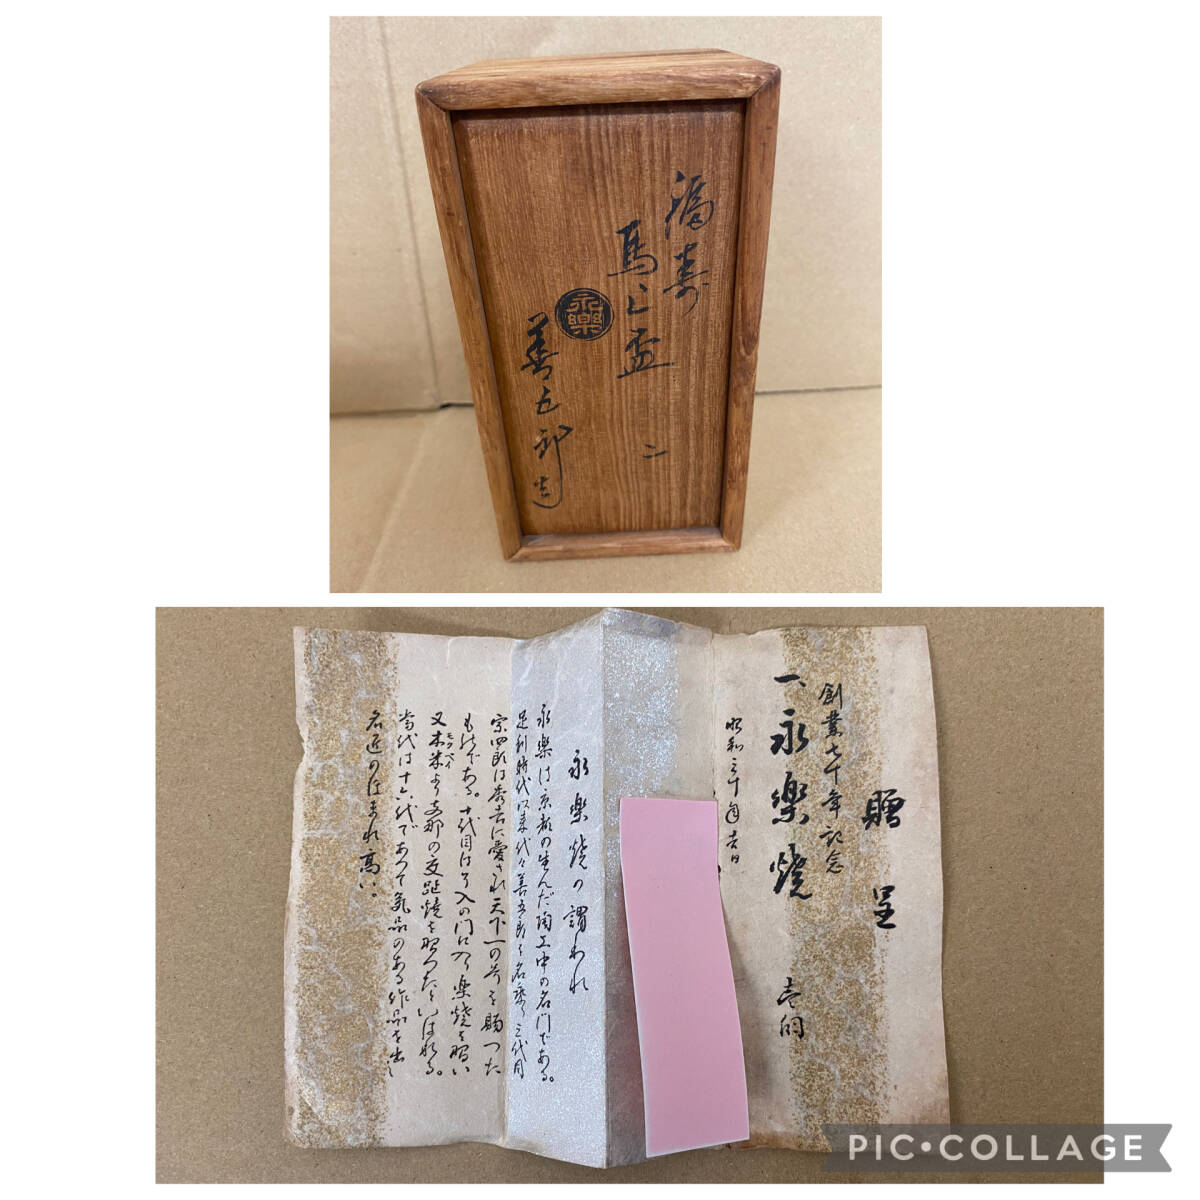 福寿
馬上盃 二
永樂
善五郎造
贈呈
創業七十年記念
一、永樂燒 壱個
昭和三十年吉日
永樂燒の謂われ
永樂は京都の生んだ陶工中の名門である。
足利時代以来代々善五郎と名乗り三代目
宗四郎は秀吉に愛され天下一の号を賜つた
ものである。十代目は了入の門に入り楽焼を習い
又木米より支那の交趾焼を習つたといはれる。
モクベイ
当代は十六代であつて気品のある作品を出し
名匠のほまれ高い。
PIC•COLLAGE